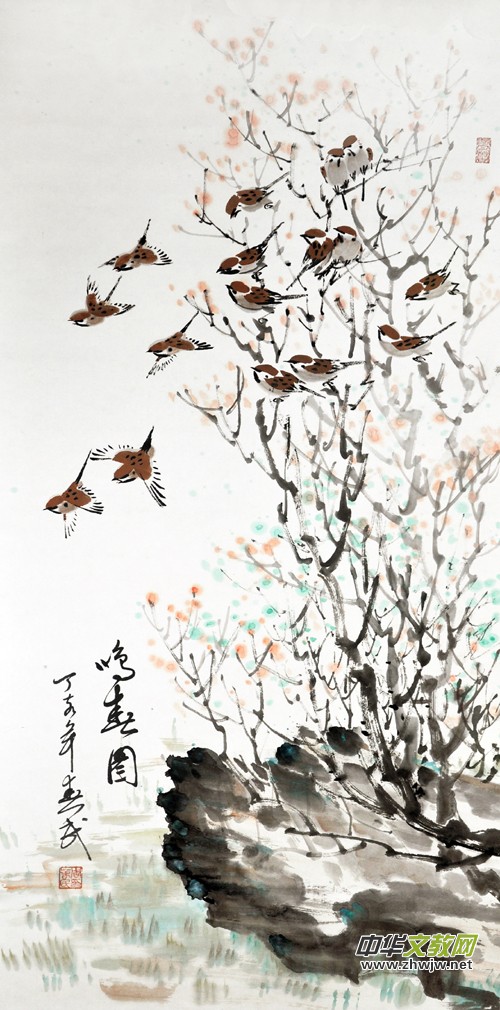 鸣春图
丁亥年春武
中华文教网
www.zhwjw.net